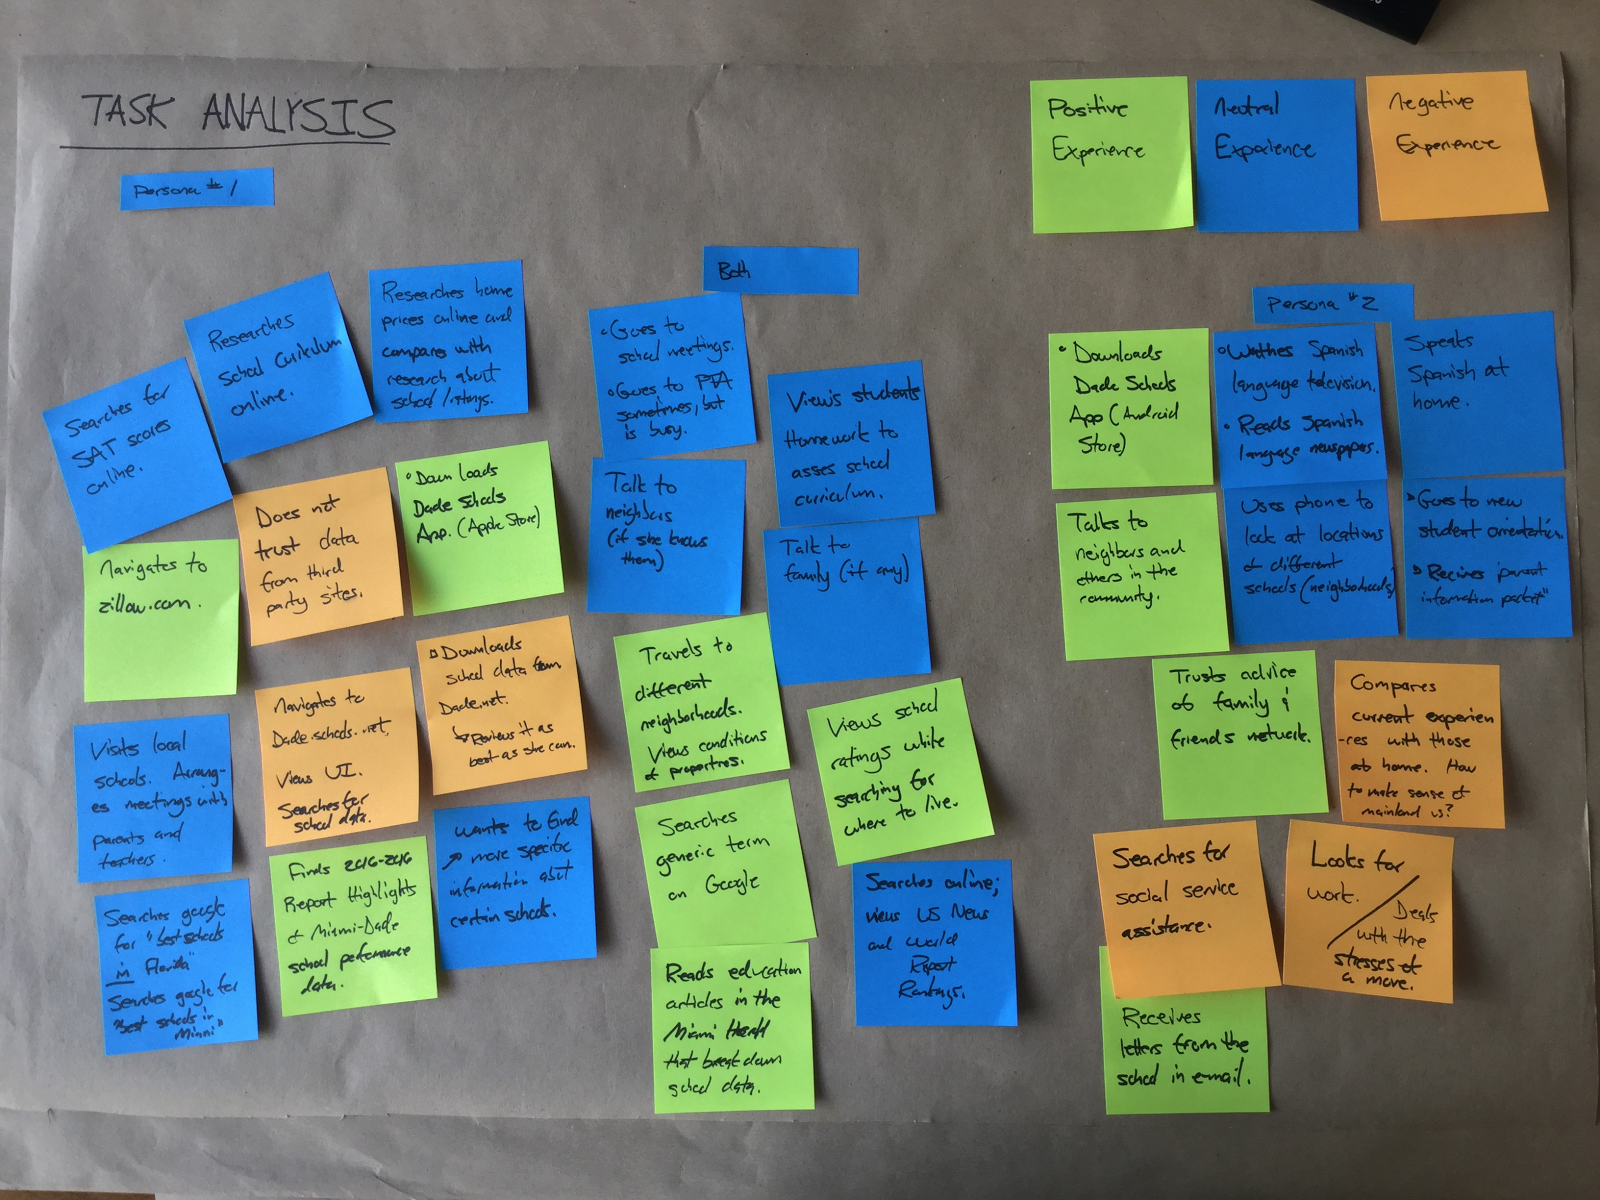 TASK ANALYSIS
Positive
Experience
Neutral
Experience
Negative
Experience
Persona #1
Searches for
SAT scores
online.
Researches
school curiculum
online.
Researches home
prices online and
compares with
research about
school/ratings.
Navigates to
zillow.com.
Does not
trust data
from third
party sites.
• Downloads
Dade Schools
App. (Apple Store)
Visits local
schools. Arrang-
es meetings with
parents and
teachers.
Navigates to
Dade.schools.net,
Views UI.
Searches for
school data.
Downloads
school data from
Dade.net.
↳ Reviews it as
best as she can.
Searches google
for "best schools
in Florida"
Searches google for
"best schools in
Miami"
Finds 2016-2016
Report Highlights
of Miami-Dade
school peformance
data.
wants to find
↗ more specific
information about
certain schools.
Both
• Goes to
school meetings.
• Goes to PTA
sometimes, but
is busy.
Views students
Homework to
asses school
curriculum.
Talk to
neighbors
(if she knows
them)
Talk to
family (if any)
Travels to
different
neighborhoods.
Views conditions
of properties.
Views school
ratings while
searching for
where to live.
Searches
generic term
on Google
Searches online;
views US News
and World
Report
Rankings.
Reads education
articles in the
Miami Herald
that break down
school data.
Persona #2
• Downloads
Dade Schools
App (Android
Store)
• Watches Spanish
language television.
• Reads Spanish
language newspapers.
Speaks
Spanish at
home.
Talks to
neighbors and
others in the
community.
Uses phone to
look at locations
of different
schools (neighborhoods)
Goes to new
student orientation.
Recives parent
information packet"
Trusts advice
of family &
friends network.
Compares
current experien
-ces with those
at home. How
to make sense of
mainland US?
Searches for
social service
assistance.
Looks for
work.
/ Deals
with the
stresses of
a move.
Receives
letters from the
school in email.